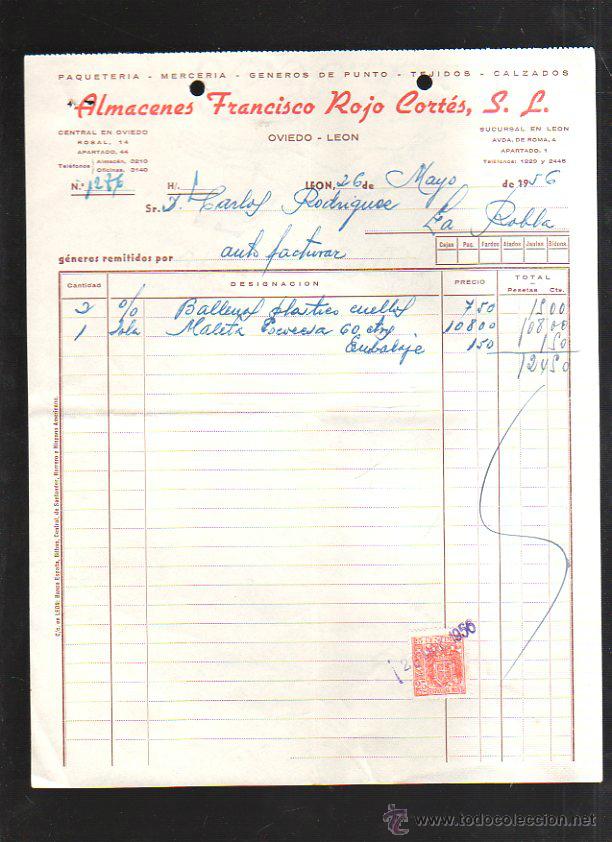 PAQUETERIA - MERCERIA - GENEROS DE PUNTO - TEJIDOS - CALZADOS
Almacenes Francisco Rojo Cortés, S. L.
OVIEDO - LEON
CENTRAL EN OVIEDO
ROSAL, 14
APARTADO, 44
Teléfonos Almacén, 0210
Oficinas, 3140
SUCURSAL EN LEON
AVDA. DE ROMA, 4
APARTADO, 1
Teléfonos: 1229 y 2446
N.º 1276 H/ 1 LEON, 26 de Mayo de 1956
Sr. D. Carlos Rodriguez
La Robla
géneros remitidos por auto facturar
Cajas Paq. Fardos Atados Jaulas Bidons.
Cantidad DESIGNACION PRECIO TOTAL
Pesetas Cts.
2 % Ballenas plastico cuellos 7 50 15 00
1 Sola Maleta Escocesa 60 ctms 108 00 108 00
Embalaje 1 50 1 50
124 50
C/c. en LEON: Banco España, Bilbao, Central, de Santander, Herrero e Hispano Americano.
1956
www.todocoleccion.net